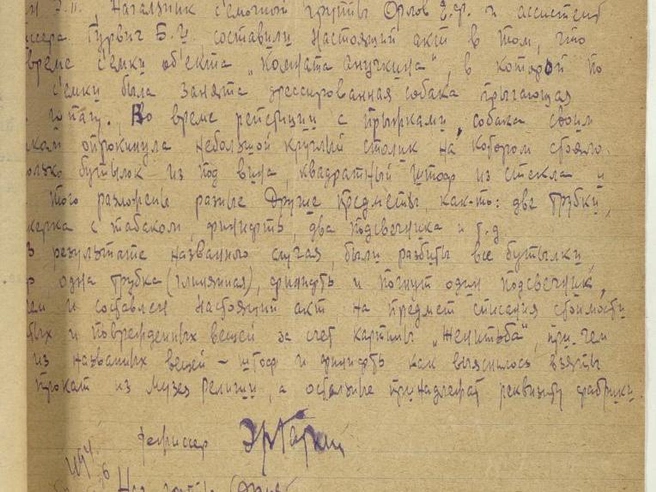 Начальник с'емочной группы Орлов Е.Ф. и ассистент
Гурвич Б.И. составили настоящий акт в том, что
время с'емки об'екта „Комната Анучкина", в которой по
с'емку была занята дрессированная собака прыгающая
Во время репетиции с прыжками, собака своим
опрокинула небольшой круглый столик на котором стояло
бутылок из под вина, квадратный штоф из стекла и
того разложены разные другие предметы как-то: две трубки,
с табаком, финифть, два подсвечника и т.д.
В результате названного случая, были разбиты все бутылки,
одна трубка (глиняная), финифть и погнут один подсвечник,
чем и составлен настоящий акт на предмет списания стоимости
и поврежденных вещей за счет картины „Женитьба", при чем
из названных вещей – штоф и финифть как выяснилось взяты
прокат из музея Религии, а остальные принадлежат реквизиту фабрики.
режиссер